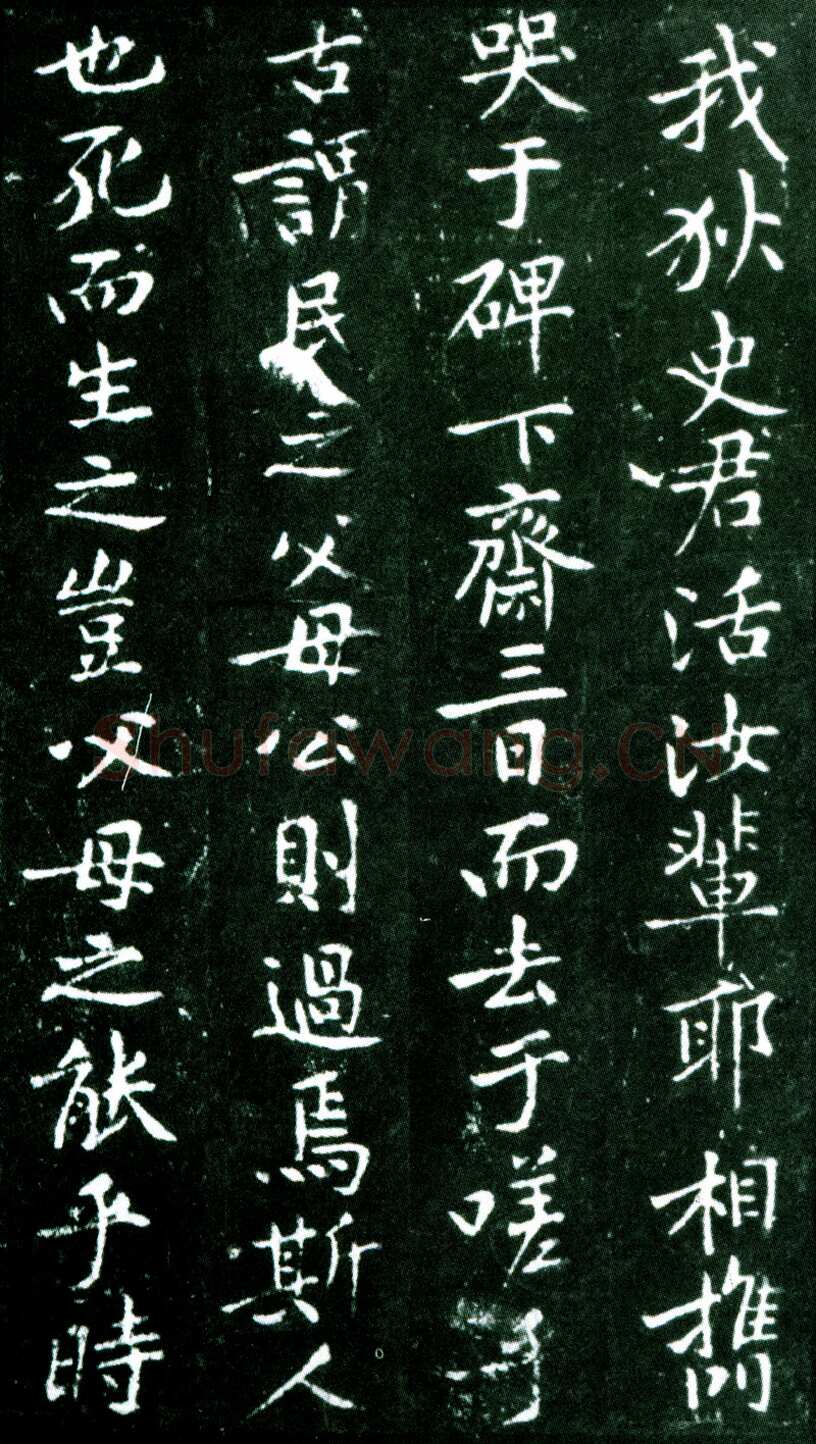 我狄史君活汝輩耶相攜
哭于碑下齋三日而去于嗟乎
古謂民之父母公則過焉斯人
也死而生之豈父母之能乎時
Shufawang.CN